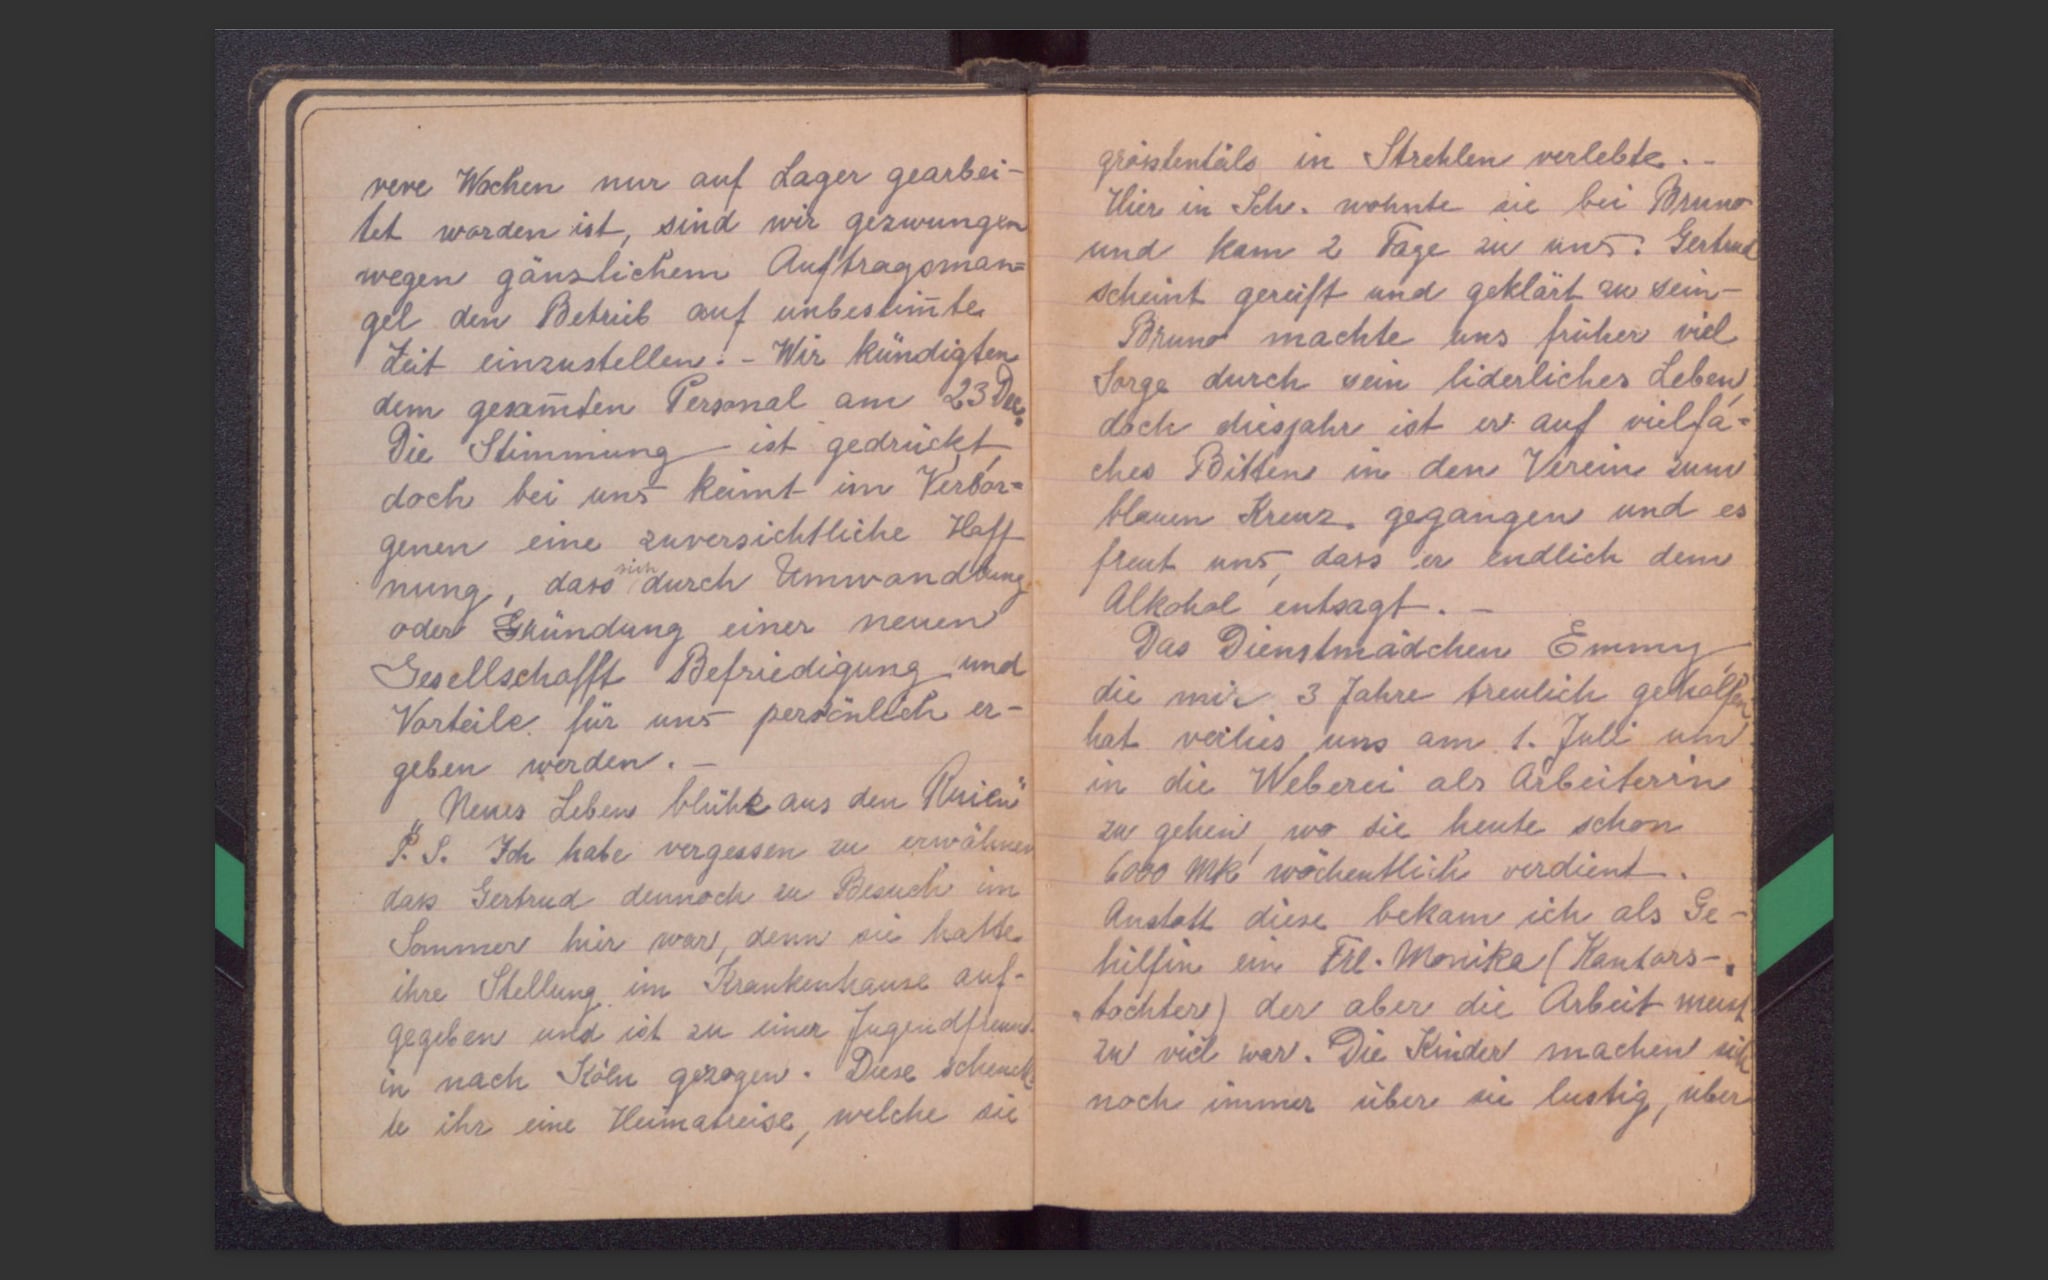 rere Wochen nur auf Lager gearbei-
tet worden ist, sind wir gezwungen
wegen gänzlichem Auftragsman=
gel den Betrieb auf unbestim̄te
Zeit einzustellen. - Wir kündigten
dem gesam̄ten Personal am 23 Dez.
Die Stimmung ist gedrückt,
doch bei uns keimt im Verbor=
genen eine zuversichtliche Hoff
nung, dass sich durch Umwandlung
oder Gründung einer neuen
Gesellschafft Befriedigung und
Vorteile für uns persönlich er-
geben werden. -
„Neues Leben blüht aus den Ruien"
P. S. Ich habe vergessen zu erwähnen
dass Gertrud dennoch zu Besuch im
Sommer hier war, denn sie hatte
ihre Stellung im Krankenhause auf-
gegeben und ist zu einer Jugendfreund
in nach Köln gezogen. Diese schenck
te ihr eine Heimatreise, welche sie
grösstentäls in Strehlen verlebte. -
Hier in Sch. wohnte sie bei Bruno
und kam 2 Tage zu uns. Gertrud
scheint gereift und geklärt zu sein-
Bruno machte uns früher viel
Sorge durch sein liderliches Leben,
doch diesjahr ist er auf vielfa=
ches Bitten in den Verein zum
blauen Kreuz. gegangen und es
freut uns, dass er endlich dem
Alkohol entsagt. -
Das Dienstmädchen Emmy
die mir 3 Jahre treulich geholfen
hat verlies uns am 1. Juli um
in die Weberei als Arbeiterin
zu gehen, wo sie heute schon
6000 Mk wöchentlich verdient.
Anstatt diese bekam ich als Ge-
hilfin ein Frl. Monika (Kantors-
tochter) der aber die Arbeit meist
zu viel war. Die Kinder machen sich
noch immer über sie lustig, über